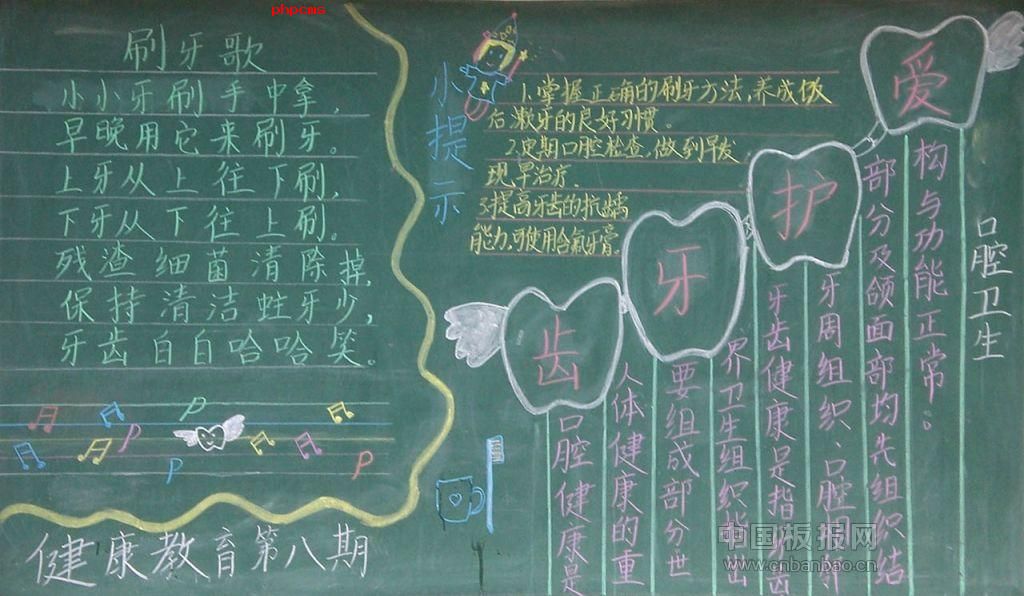 phpcms
刷牙歌
小小牙刷手中拿,
早晚用它来刷牙。
上牙从上往下刷,
下牙从下往上刷。
残渣细菌清除掉,
保持清洁蛀牙少,
牙齿白白哈哈笑。
健康教育第八期
小提示
1.掌握正确的刷牙方法,养成饭
后漱牙的良好习惯。
2.定期口腔检查,做到早发
现早治疗.
3.提高牙齿的抗龋
能力.可使用含氟牙膏。
爱护牙齿
口腔卫生
口腔健康是
人体健康的重
要组成部分世
界卫生组织 出
牙齿健康是指 齿
牙周组织、口腔
部分及颌面部均先组织结
构与功能正常。
中国板报网
www.cnbanbao.cn